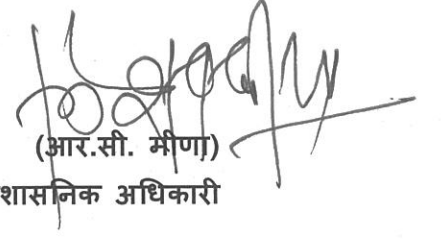 (आर.सी. मीणा)
शासनिक अधिकारी